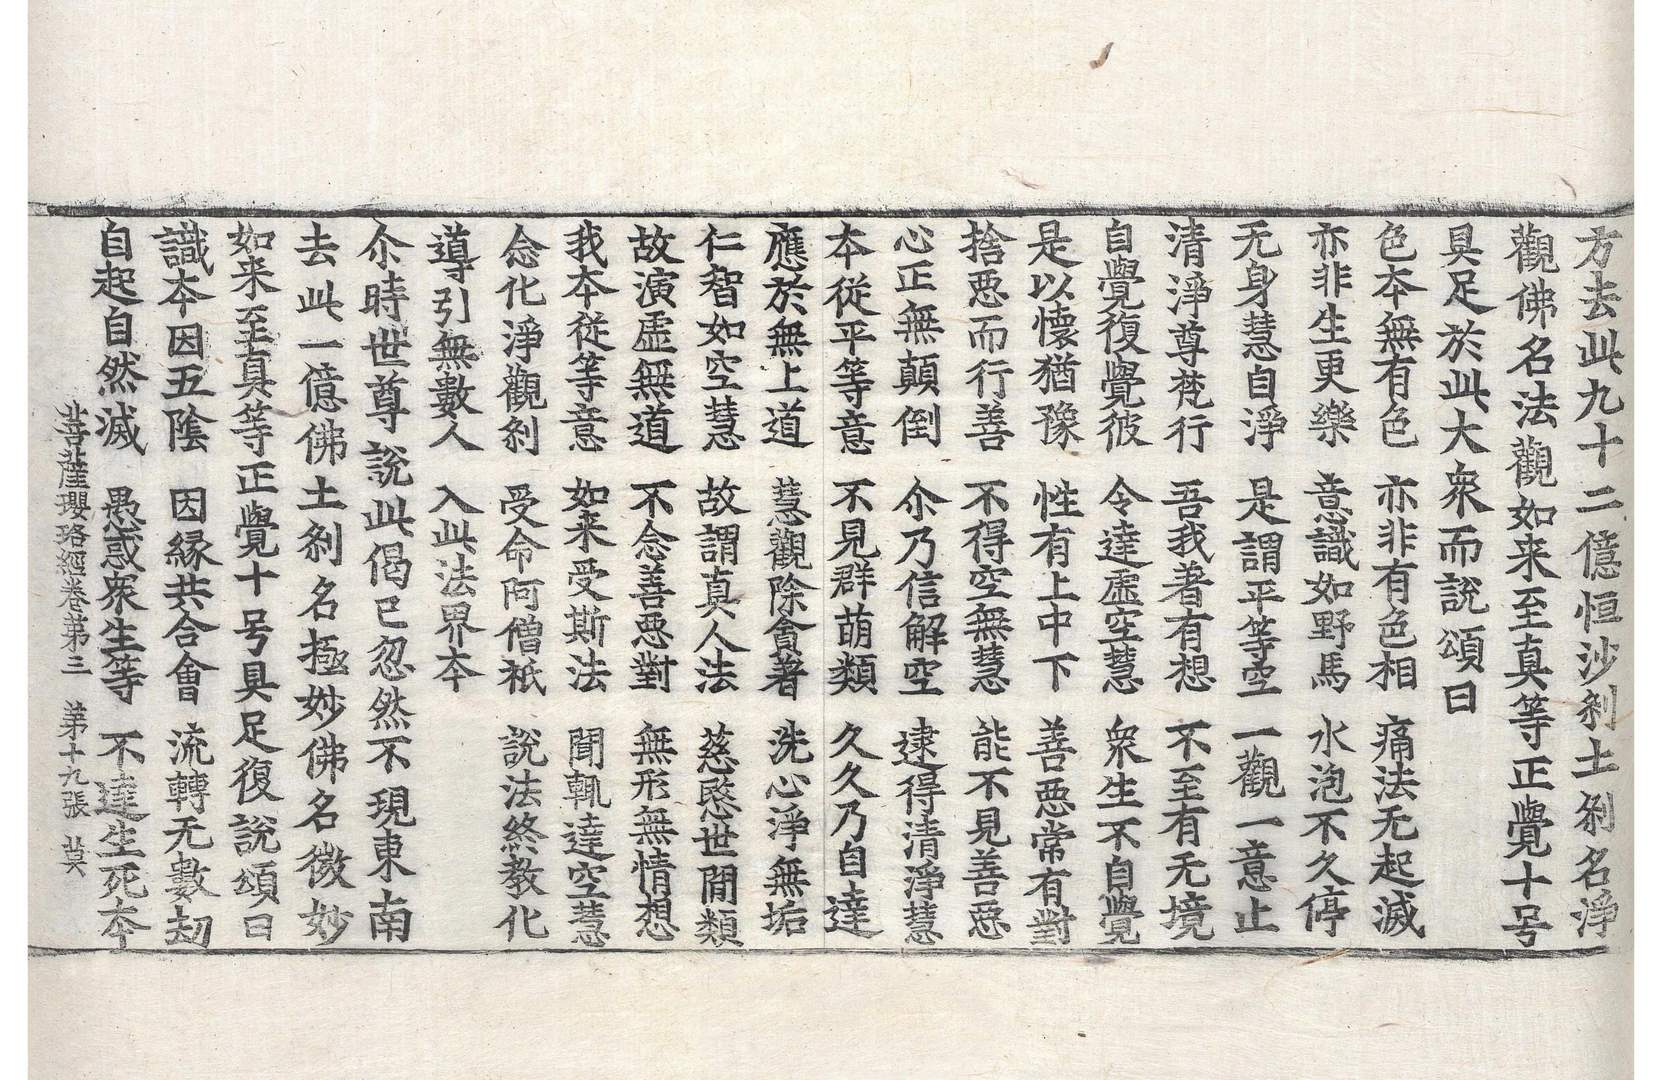 方去此九十二億恒沙刹土刹名淨
觀佛名法觀如来至真等正覺十号
具足於此大衆而說頌曰
色本無有色 亦非有色相 痛法无起滅
亦非生更樂 意識如野馬 水泡不久停
无身慧自淨 是謂平等空 一觀一意止
清淨尊梵行 吾我著有想 不至有无境
自覺復覺彼 令達虛空慧 衆生不自覺
是以懷猶豫 性有上中下 善惡常有對
捨惡而行善 不得空無慧 能不見善惡
心正無顛倒 尒乃信解空 逮得清淨慧
本從平等意 不見群萌類 久久乃自達
應於無上道 慧觀除貪著 洗心淨無垢
仁智如空慧 故謂真人法 慈愍世間類
故演虛無道 不念善惡對 無形無情想
我本從等意 如来受斯法 聞輒達空慧
念化淨觀刹 受命阿僧祇 說法終教化
導引無數人 入此法界本
尒時世尊說此偈已忽然不現東南
去此一億佛土刹名極妙佛名微妙
如来至真等正覺十号具足復說頌曰
識本因五陰 因緣共合會 流轉无數劫
自起自然滅 愚惑衆生等 不達生死本
菩薩瓔珞經卷第三 第十九張 莫